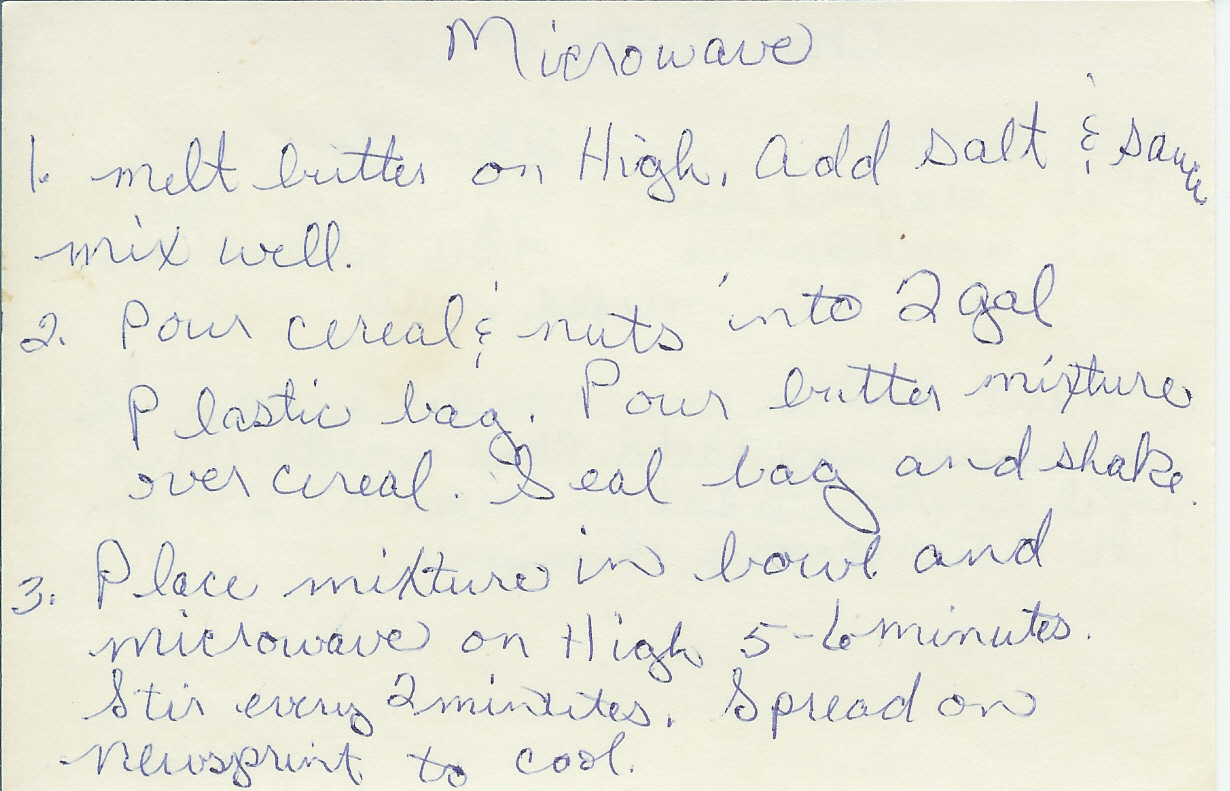 Microwave
1. melt butter on High. Add salt & sauce
mix well.
2. Pour cereal & nuts into 2 gal
Plastic bag. Pour butter mixture
over cereal. Seal bag and shake.
3. Place mixture in bowl and
microwave on High 5-6 minutes.
Stir every 2 minutes. Spread on
Newsprint to cool.